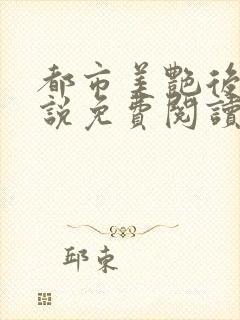 都市美艷後
說免費閱讀
邱東